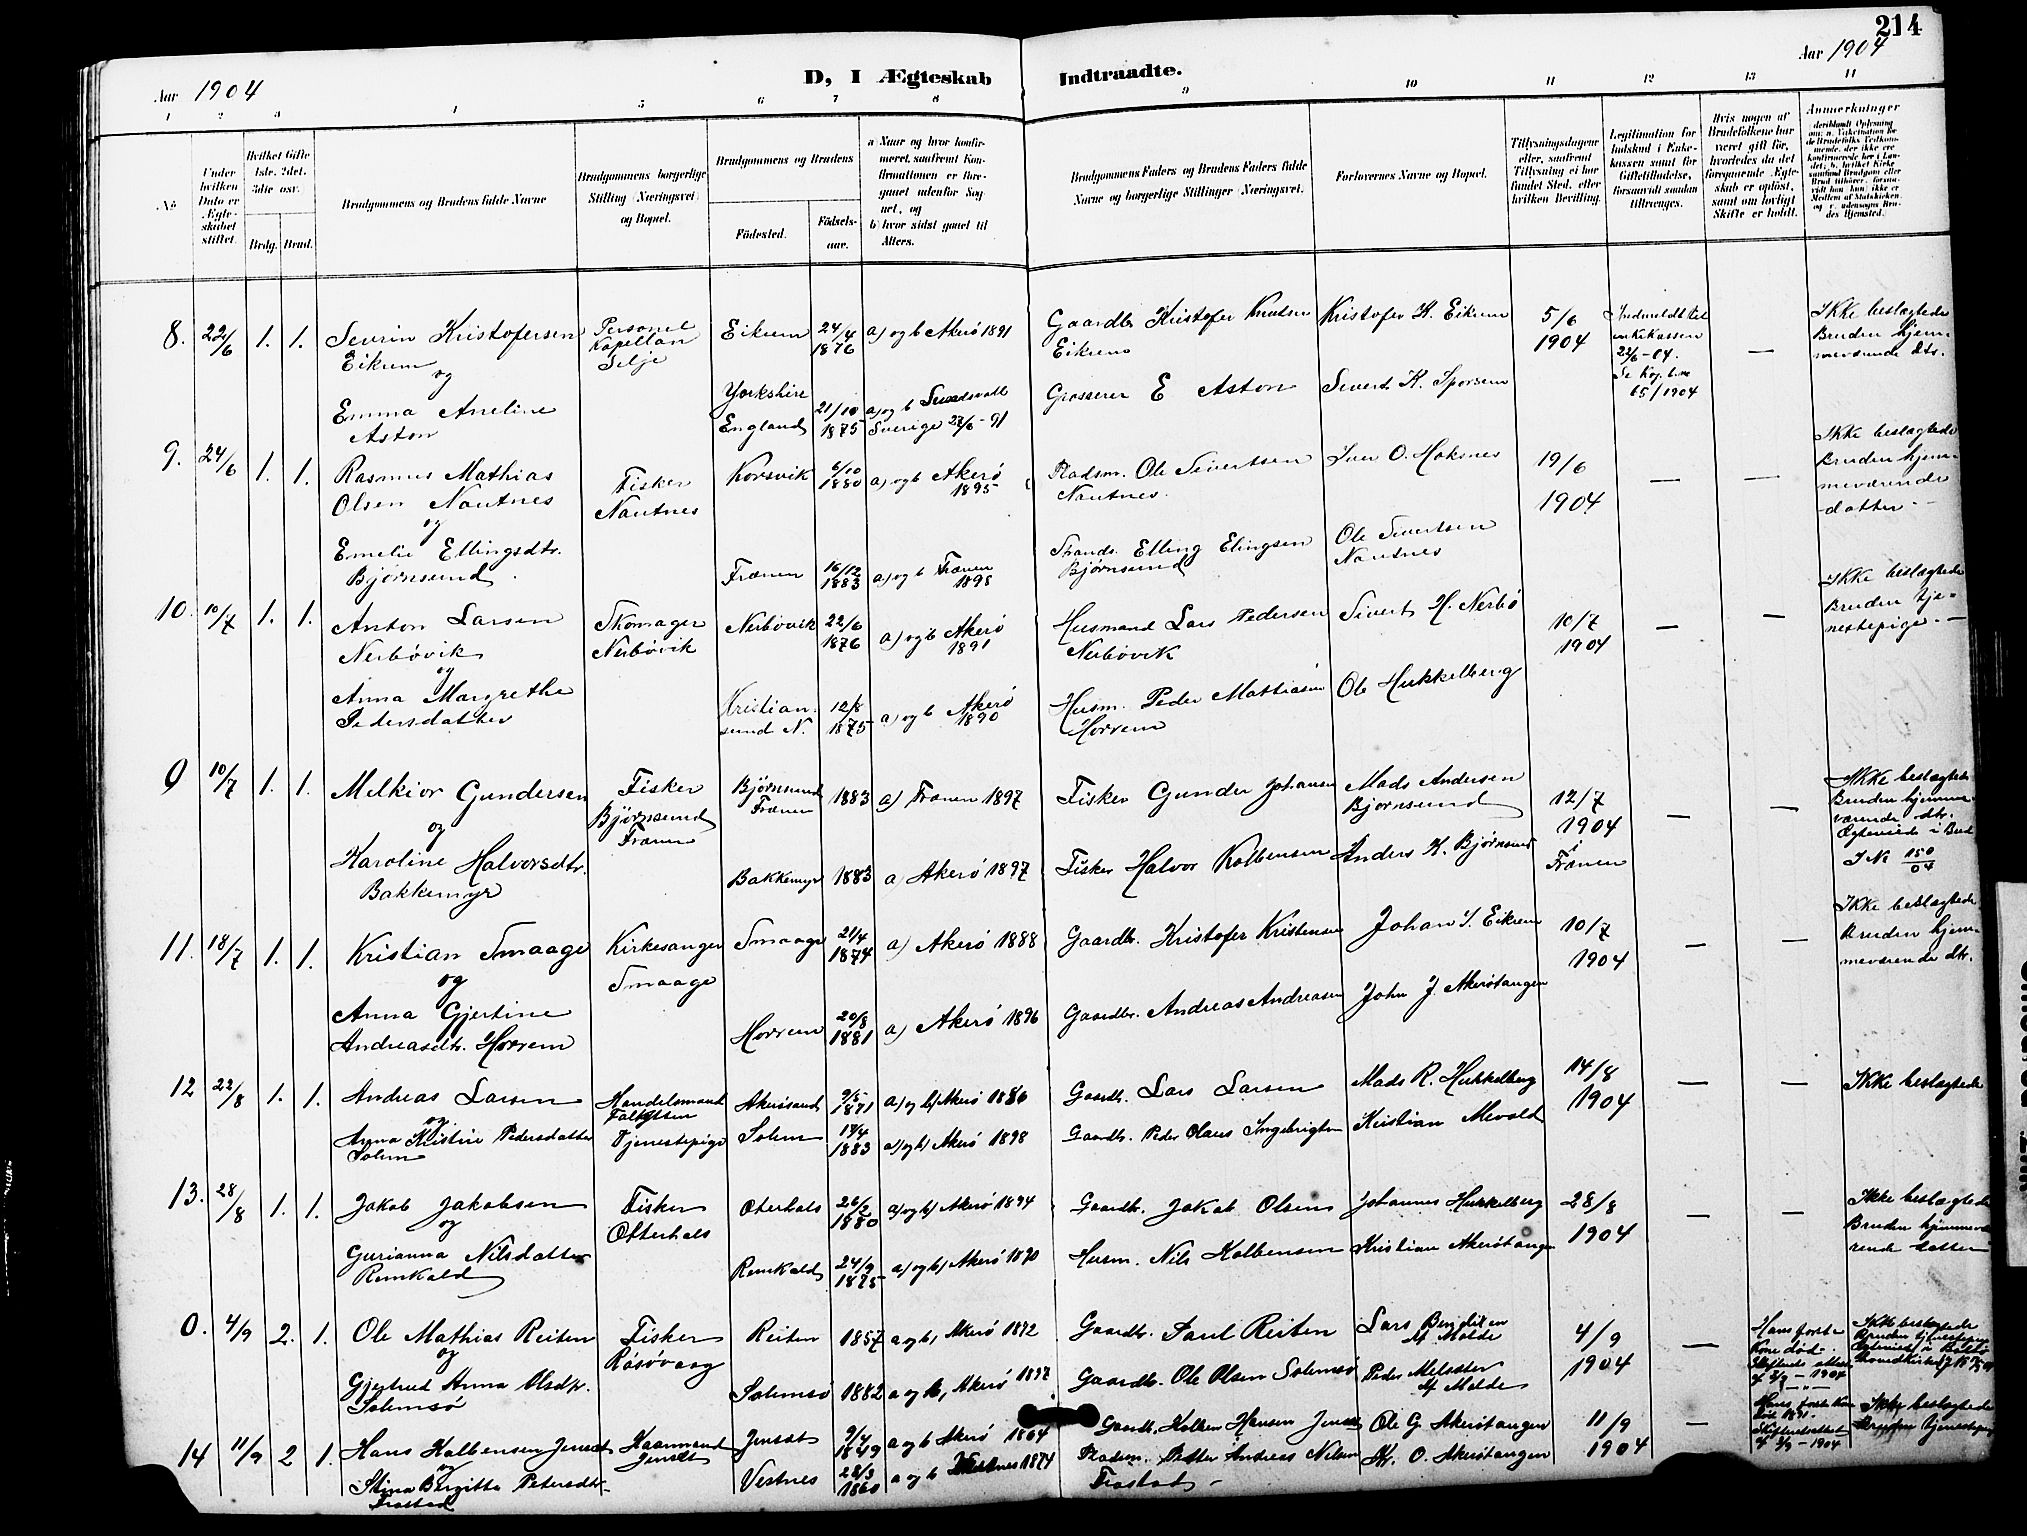 214
Aar 1904
D, I Ægteskab Indtraadte.
Aar 1904
1 2 3 4 5 6 7 8 9 10 11 12 13 14
No
Under hvilken Dato er Ægteskabet stiftet.
Hvilket Gifte 1ste, 2det, 3die osv.
Brdg. Brud.
Brudgommens og Brudens fulde Navne
Brudgommens borgerlige Stilling (Næringsvei) og Bopæl.
Brudgommens og Brudens
Fødested.
Fødselsaar.
a) Naar og hvor konfirmeret, saafremt Konfirmationen er foregaaet udenfor Sognet, og
b) hvor sidst gaaet til Alters.
Brudgommens Faders og Brudens Faders fulde Navne og borgerlige Stillinger (Næringsvei.
Forlovernes Navne og Bopæl.
Tillysningsdagene eller, saafremt Tillysning ei har fundet Sted, efter hvilken Bevilling.
Legitimation for Indskud i Enkekassen samt for Giftetilladelse, forsaavidt saadan tiltrænges.
Hvis nogen af Brudefolkene har været gift før, hvorledes da det foregaaende Ægteskab er opløst, samt om lovligt Skifte er holdt.
Anmerkninger
8. 22/6 1. 1. Sevrin Kristofersen Eikrem
og
Emma Aneline Aston
Personel Kapellan Selje
Eikrem 24/4 1876 a) og b Akerö 1891
Yorkshire England 21/10 1875 a) og b Sundsvall Sverige 27/6-91
Gaardbr Kristofer Knutsen Eikrem
Grosserer E Aston
Kristofer K. Eikrem
Sivert K. Sporsem
5/6 1904
Indmeldt til enkekassen 22/6-04.
65/1904
—
Ikke beslægtede Bruden hjemmeværende dtr.
9. 24/6 1. 1. Rasmus Mathias Olsen Nautnes
og
Emelie Ellingsdtr. Björnsund
Fisker Nautnes
Korsvik 6/10 1880 a) og b Akerö 1895
Frænen 16/12 1883 a) og b Frænen 1898
Pladsm. Ole Sivertsen Nautnes.
Strands. Elling Elingsen Björnsund
Iver O. Hoksnes
Ole Sivertsen Nautnes
19/6 1904
— —
Ikke beslægtede Bruden hjemmeværende datter.
10. 10/7 1. 1. Anton Larsen Nerbövik
og
Anna Margrethe Pedersdatter
Skomager Nerbövik
Nerbövik 22/6 1876 a) og b Akerö 1891
Kristiansund N. 12/8 1875 a) og b Akerö 1890
Husmand Lars Pedersen Nerbövik
Husm. Peder Mathiasen Horrem
Sivert H. Nerbö
Ole Hukkelberg
10/7 1904
— —
Ikke beslægtede Bruden tjenestepige. —
0 10/7 1. 1. Melkior Gundersen
og
Karoline Halvorsdtr. Bakkemyr
Fisker Björnsund Frænen
Björnsund Frænen 1883 a) Frænen 1897
Bakkemyr 1883 a) Akerö 1897
Fisker Gunder Johansen
Fisker Halvor Kolbensen
Mads Andersen Björnsund
Anders K. Björnsund
12/7 1904 i Frænen
— —
Ikke beslægtede Bruden hjemmeværende dtr.
J No 150/04
11. 18/7 1. 1. Kristian Smaage
og
Anna Gjertine Andreasdtr. Horrem
Kirkesanger Smaage
Smaage 21/4 1874 a) Akerö 1888
Horrem 20/8 1881 a) Akerö 1896
Gaardbr. Kristofer Kristensen
Gaardbr. Andreas Andreasen
Johan S. Eikrem
John J. Akeröstangen
10/7 1904
— —
Ikke beslægtede Bruden hjemmeværende dtr.
12 22/8 1. 1. Andreas Larsen
og
Anna Kristine Pedersdatter Solem
Handelsmand
Tjenestepige
Akerösund 9/5 1871 a) og b) Akerö 1886
Solem 17/4 1883 a) og b) Akerö 1898
Gaardb. Lars Larsen
Gaardb. Peder Olaus Ingebrigtsen
Mads R. Hukkelberg
Kristian Mevold
14/8 1904
— —
Ikke beslægtede
13. 28/8 1. 1. Jakob Jakobsen
og
Gurianna Nilsdatter Remkald
Fisker Otterhals
Oterhals 26/2 1880 a) og b) Akerö 1894
Remkald 24/9 1875 a) og b) Akerö 1890
Gaardb. Jakob Olsen
Husm. Nils Kolbensen
Johannes Hukkelberg
Kristian Akeröstangen
28/8 1904
— —
Ikke beslægtede Bruden hjemmeværende datter
0. 4/9 2. 1. Ole Mathias Reiten
og
Gjertrud Anna Olsdtr. Solemsö
Fisker Rösövaag
Reiten 1857 a og b, Akerö 1872
Solemsö 1882 a og b, Akerö 1897
Gaardb. Paul Reiten
Gaardb. Ole Olsen Solemsö
Lars Bendixen af Molde
Peder Melseter af Molde
4/9 1904
—
Hans første Kone død.
Ikke beslægtede
14 11/9 2 1. Hans Kolbensen Jenset
og
Stina Bergitta Petersdtr. Frostad
Kaarmand Jenset
Jenset 9/4 1849 a og b Akerö 1864
Vestnes 28/3 1860 a og b Vestnes 1874
Gaardb. Kolben Hansen Jenset
Pladsm. Petter Andreas Nilsen Frostad
Ole G. Akeröstangen
K. O. Akeröstangen
11/9 1904
—
Ikke beslægtede Bruden tjenestepige